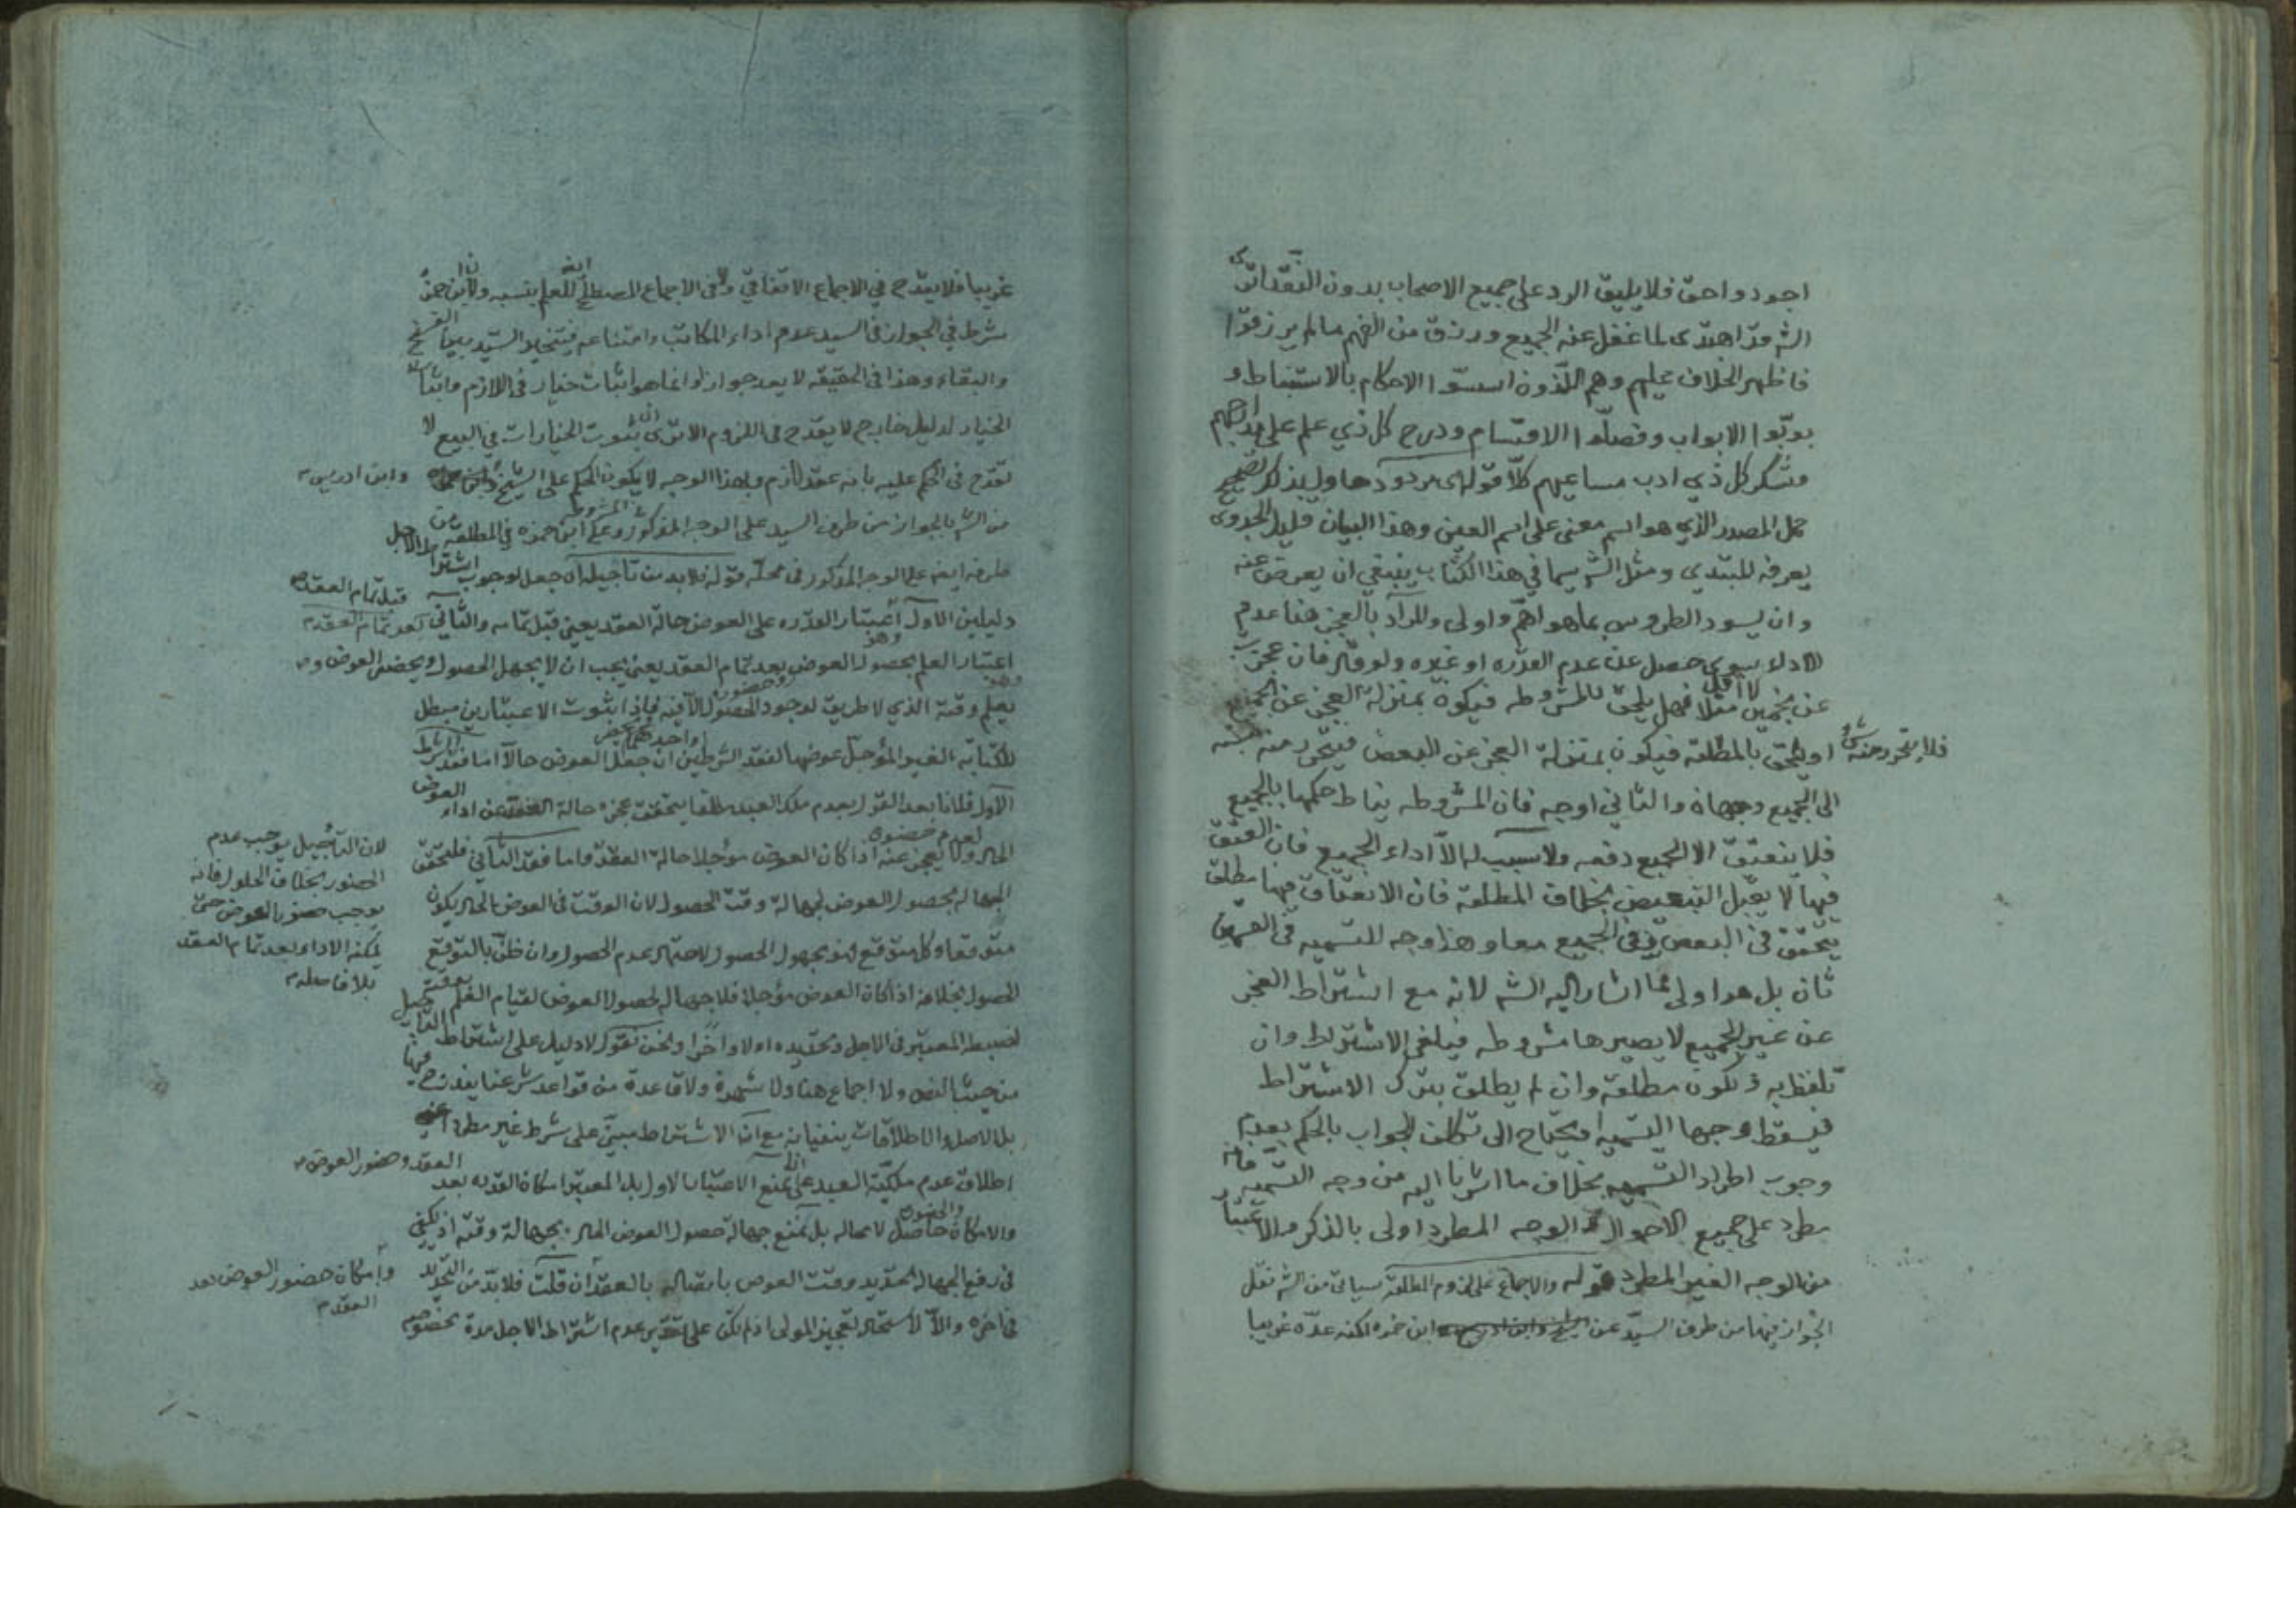 اجود واحق فلا يليق الرد على جميع الاصحاب بدون
الشه قد اهتدى لما غفل عنه الجميع ورزق من الفهم ما لم يرزقوا
فاظهر الخلاف عليهم وهم اللذون اسسوا الاحكام بالاستنباط و
بوبوا الابواب وفصلوا الاقسام ودرج كل ذي علم على
فشكر كل ذي ادب مساعيهم كلا قوله
حمل المصدر الذي هو اسم معنى على اسم العين وهذا البيان قليل الجدوى
يعرفه المبتدي ومثل الشه سيما في هذا الكتاب ينبغي ان يعرض عنه
وان يسود الطروس بما هو اهم واولى والمراد بالعجز هنا عدم
الاداء سوى حصل عن عدم القدره او غيره ولو قال فان عجزت
عن خمسين مثلا لا اقل فهل يلحق بالمشروطه فيكون بمنزلة العجز عن الجميع
فلا يتحرر منه شئ
او يلحق بالمطلقه فيكون بمنزلة العجز عن البعض فيتحرر منه
الى الجميع وجهان والثاني اوجه فان المشروطه يناط حكمها بالجميع
فلا ينعتق الا الجميع دفعه ولا سبب له الا اداء الجميع فان العتق
فيها لا يقبل التبعيض بخلاف المطلقه فان الانعتاق فيها مطلق
يتحقق في البعض وفي الجميع معا وهذا وجه للتسميه في القسمين
ثان بل هو اولى مما اشار اليه الشه لانه مع اشتراط العجز
عن غير الجميع لا يصيرها مشروطه فيلغى الاشتراط وان
تلفظ به وتكون مطلقه وان لم يطلق بترك الاشتراط
فيسقط وجها التسميه ويحتاج الى تكلف الجواب بالحكم بعدم
وجوب اطراد التسميه بخلاف ما اشرنا اليه من وجه التسميه فانه
مطرد على جميع الاحوال والوجه المطرد اولى بالذكر والاعتبار
من الوجه الغير المطرد قوله والاجماع على لزوم المطلقه سياتي من الشه نقل
الجواز فيها من طرف السيد عن ابن حمزه لكنه عده غريبا
غريبا فلا يقدح في الاجماع الاتفاقي ولا في الاجماع المصطلح للعلم بنسبه ولان ابن حمزه
شرط في الجواز في السيد عدم اداء المكاتب وامتناعه فيتخير السيد بين الفسخ
والبقاء وهذا في الحقيقه لا يعد جوازا وانما هو اثبات خيار في اللازم واثبات
الخيار لدليل خارج لا يقدح في اللزوم الا ترى ان ثبوت الخيارات في البيع لا
تقدح في الحكم عليه بانه عقد لازم وبهذا الوجه لا يكون الحكم على الشيخ وابن ادريس
من الشه بالجواز من طرف السيد على الوجه المذكور وعلى ابن حمزه في المطلقه من
طرفه ايضا على الوجه المذكور في محله قوله فلا بد من تاجيله اه جعل لوجوب اشتراط الاجل
دليلين الاول اعتبار القدره على العوض حالة العقد يعني قبل تمامه والثاني
قبل تمام العقد
بعد تمام العقد
اعتبار العلم بحصول العوض بعد تمام العقد يعني يجب ان لا يجهل الحصول
يعلم وقته الذي لا طريق لوجود الحصول الا فيه فاذا ثبوت الاعتبارين مبطل
للكتابه الغير المؤجل عوضها لفقد الشرطين ان جعل العوض حالا اما فقد الشرط
الاول فلما بعد القول بعدم ملك العبد مطلقا يتحقق عجزه حالة العقد عن اداء العوض
الحال ولا يعجز عنه اذا كان العوض مؤجلا حالة العقد واما فقد الثاني فلتحقق
الجهاله بحصول العوض لجهالة وقت الحصول لان الوقت في العوض الحال يكون
متوقعا وكل متوقع فهو مجهول الحصول لاحتمال عدم الحصول وان ظن بالتوقع
الحصول بخلافه اذا كان العوض مؤجلا فلا جهاله لحصول العوض لقيام العلم
لضبطه المعتبر في الاجل وتحديده اولا واخرا ونحن نقول لا دليل على اشتراط
من حيث النص ولا اجماع هنا ولا شهرة ولا قاعدة من قواعد شرعنا يندرج فيها
بل الاصل والاطلاقات ينفيانه مع ان الاشتراط مبني على شرط غير مطرد
اطلاق عدم ملكية العبد على انا نمنع الاعتبار الاول بل المعتبر امكان القدره بعد
العقد وحضور العوض
والامكان حاصل لا محاله بل نمنع جهالة حصول العوض الحال بجهالة وقته اذ يكفي
في رفع الجهاله تحديد وقت العوض باتصاله بالعقد ان قلت فلا بد من التحديد
في اخره والا لاستحال تعجيز المولى اذ لم يكن على تقدير عدم اشتراط الاجل مدة
لان التأجيل يوجب عدم
الحضور بخلاف الحلول فانه
يوجب حضور العوض حتى
يمكنه الاداء بعد تمام العقد
بلا فاصله
وامكان حضور العوض بعد
العقد